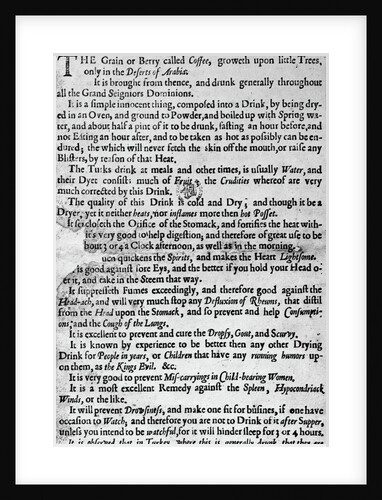 THE Grain or Berry called Coffee, groweth upon little Trees,
only in the Deserts of Arabia.
It is brought from thence, and drunk generally throughout
all the Grand Seigniors Dominions.
It is a simple innocent thing, composed into a Drink, by being dry-
ed in an Oven, and ground to Powder, and boiled up with Spring wa-
ter, and about half a pint of it to be drunk, fasting an hour before, and
not Eating an hour after, and to be taken as hot as possibly can be en-
dured; the which will never fetch the skin off the mouth, or raise any
Blisters, by reason of that Heat.
The Turks drink at meals and other times, is usually Water, and
their Dyet consists much of Fruit, the Crudities whereof are very
much corrected by this Drink.
The quality of this Drink is cold and Dry; and though it be a
Dryer, yet it neither heats, nor inflames more then hot Posset.
It so closeth the Orifice of the Stomack, and fortifies the heat with-
it's very good to help digestion, and therefore of great use to be
bout 3 or 4 a Clock afternoon, as well as in the morning.
uch quickens the Spirits, and makes the Heart Lightsome.
is good against sore Eys, and the better if you hold your Head o-
er it, and take in the Steem that way.
It suppresseth Fumes exceedingly, and therefore good against the
Head-ach, and will very much stop any Defluxion of Rheums, that distil
from the Head upon the Stomack, and so prevent and help Consumpti-
ons; and the Cough of the Lungs.
It is excellent to prevent and cure the Dropsy, Gout, and Scurvy.
It is known by experience to be better then any other Drying
Drink for People in years, or Children that have any running humors up-
on them, as the Kings Evil. &c.
It is very good to prevent Mis-carryings in Child-bearing Women.
It is a most excellent Remedy against the Spleen, Hypocondriack
Winds, or the like.
It will prevent Drowsiness, and make one fit for busines, if one have
occasion to Watch; and therefore you are not to Drink of it after Supper,
unless you intend to be watchful, for it will hinder sleep for 3 or 4 hours.
It is observed that in Turkey, where this is generally drunk, that they are